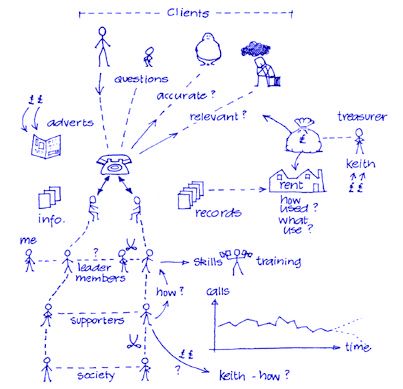 Clients
questions
accurate ?
relevant ?
£ £
adverts
£
treasurer
keith
£ £
rent
how
used ?
what
use ?
info.
records
me
?
leader
members
skills
training
how ?
calls
supporters
time
£ £
?
society
keith - how ?